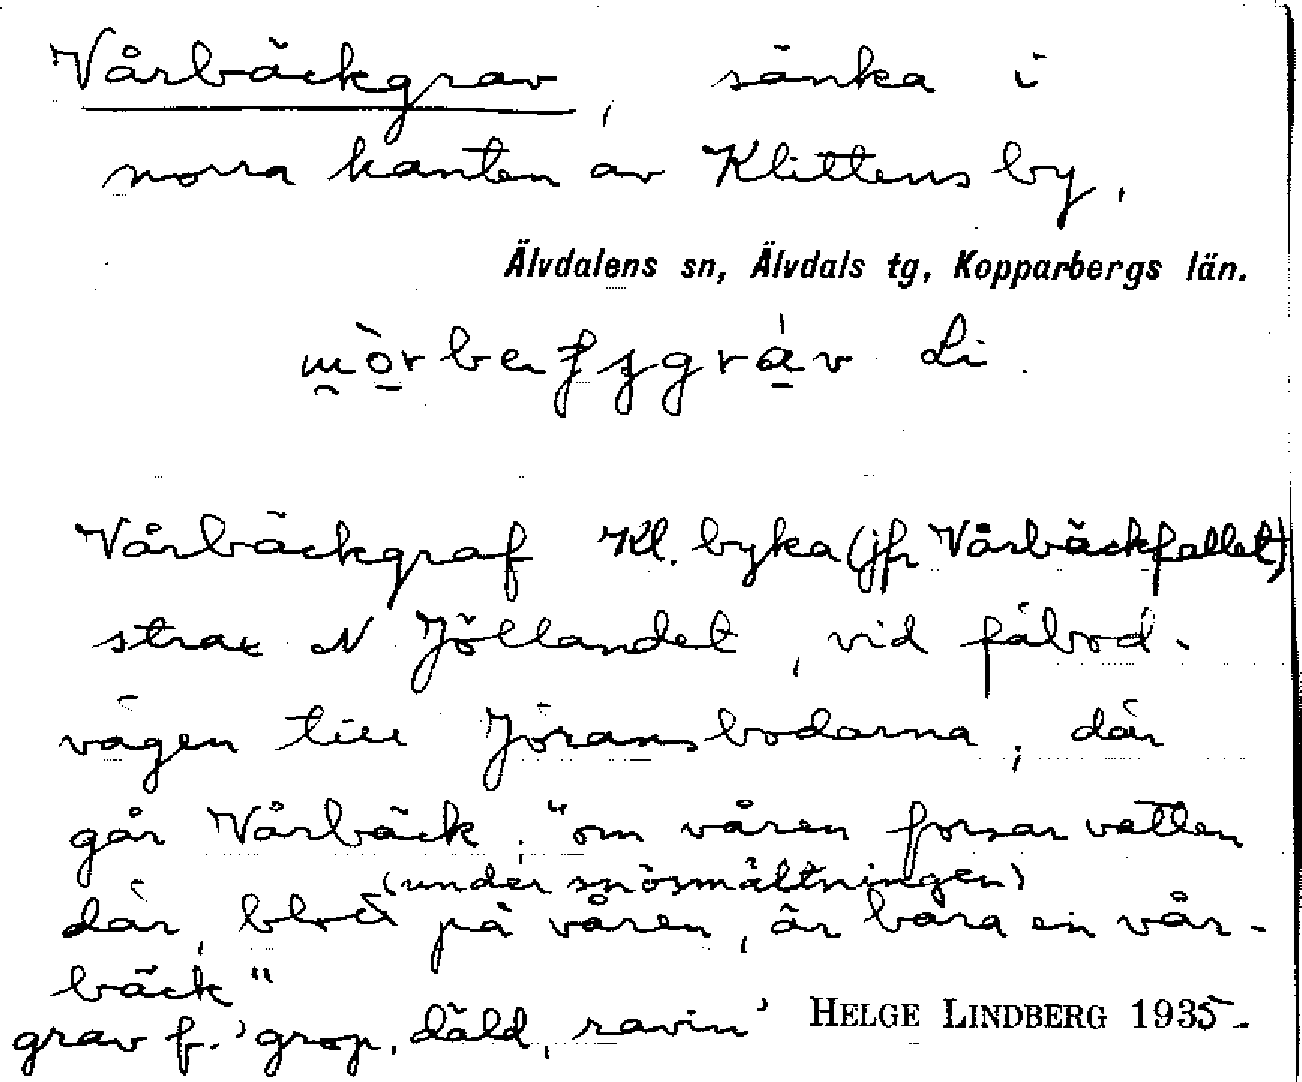 Vårbäckgrav, sänka i
norra kanten av Klittens by,
Älvdalens sn, Älvdals tg, Kopparbergs län.
Li.
Vårbäckgraf Kl. byka (jfr Vårbäckfallet)
strax N Jöllandet, vid fäbod-
vägen till Jöransbodarna, där
går Vårbäck, "om våren forsar vatten
(under snösmältningen)
där, blod på våren, är bara en vår-
bäck"
grav f. 'grop, däld, ravin' HELGE LINDBERG 1935.